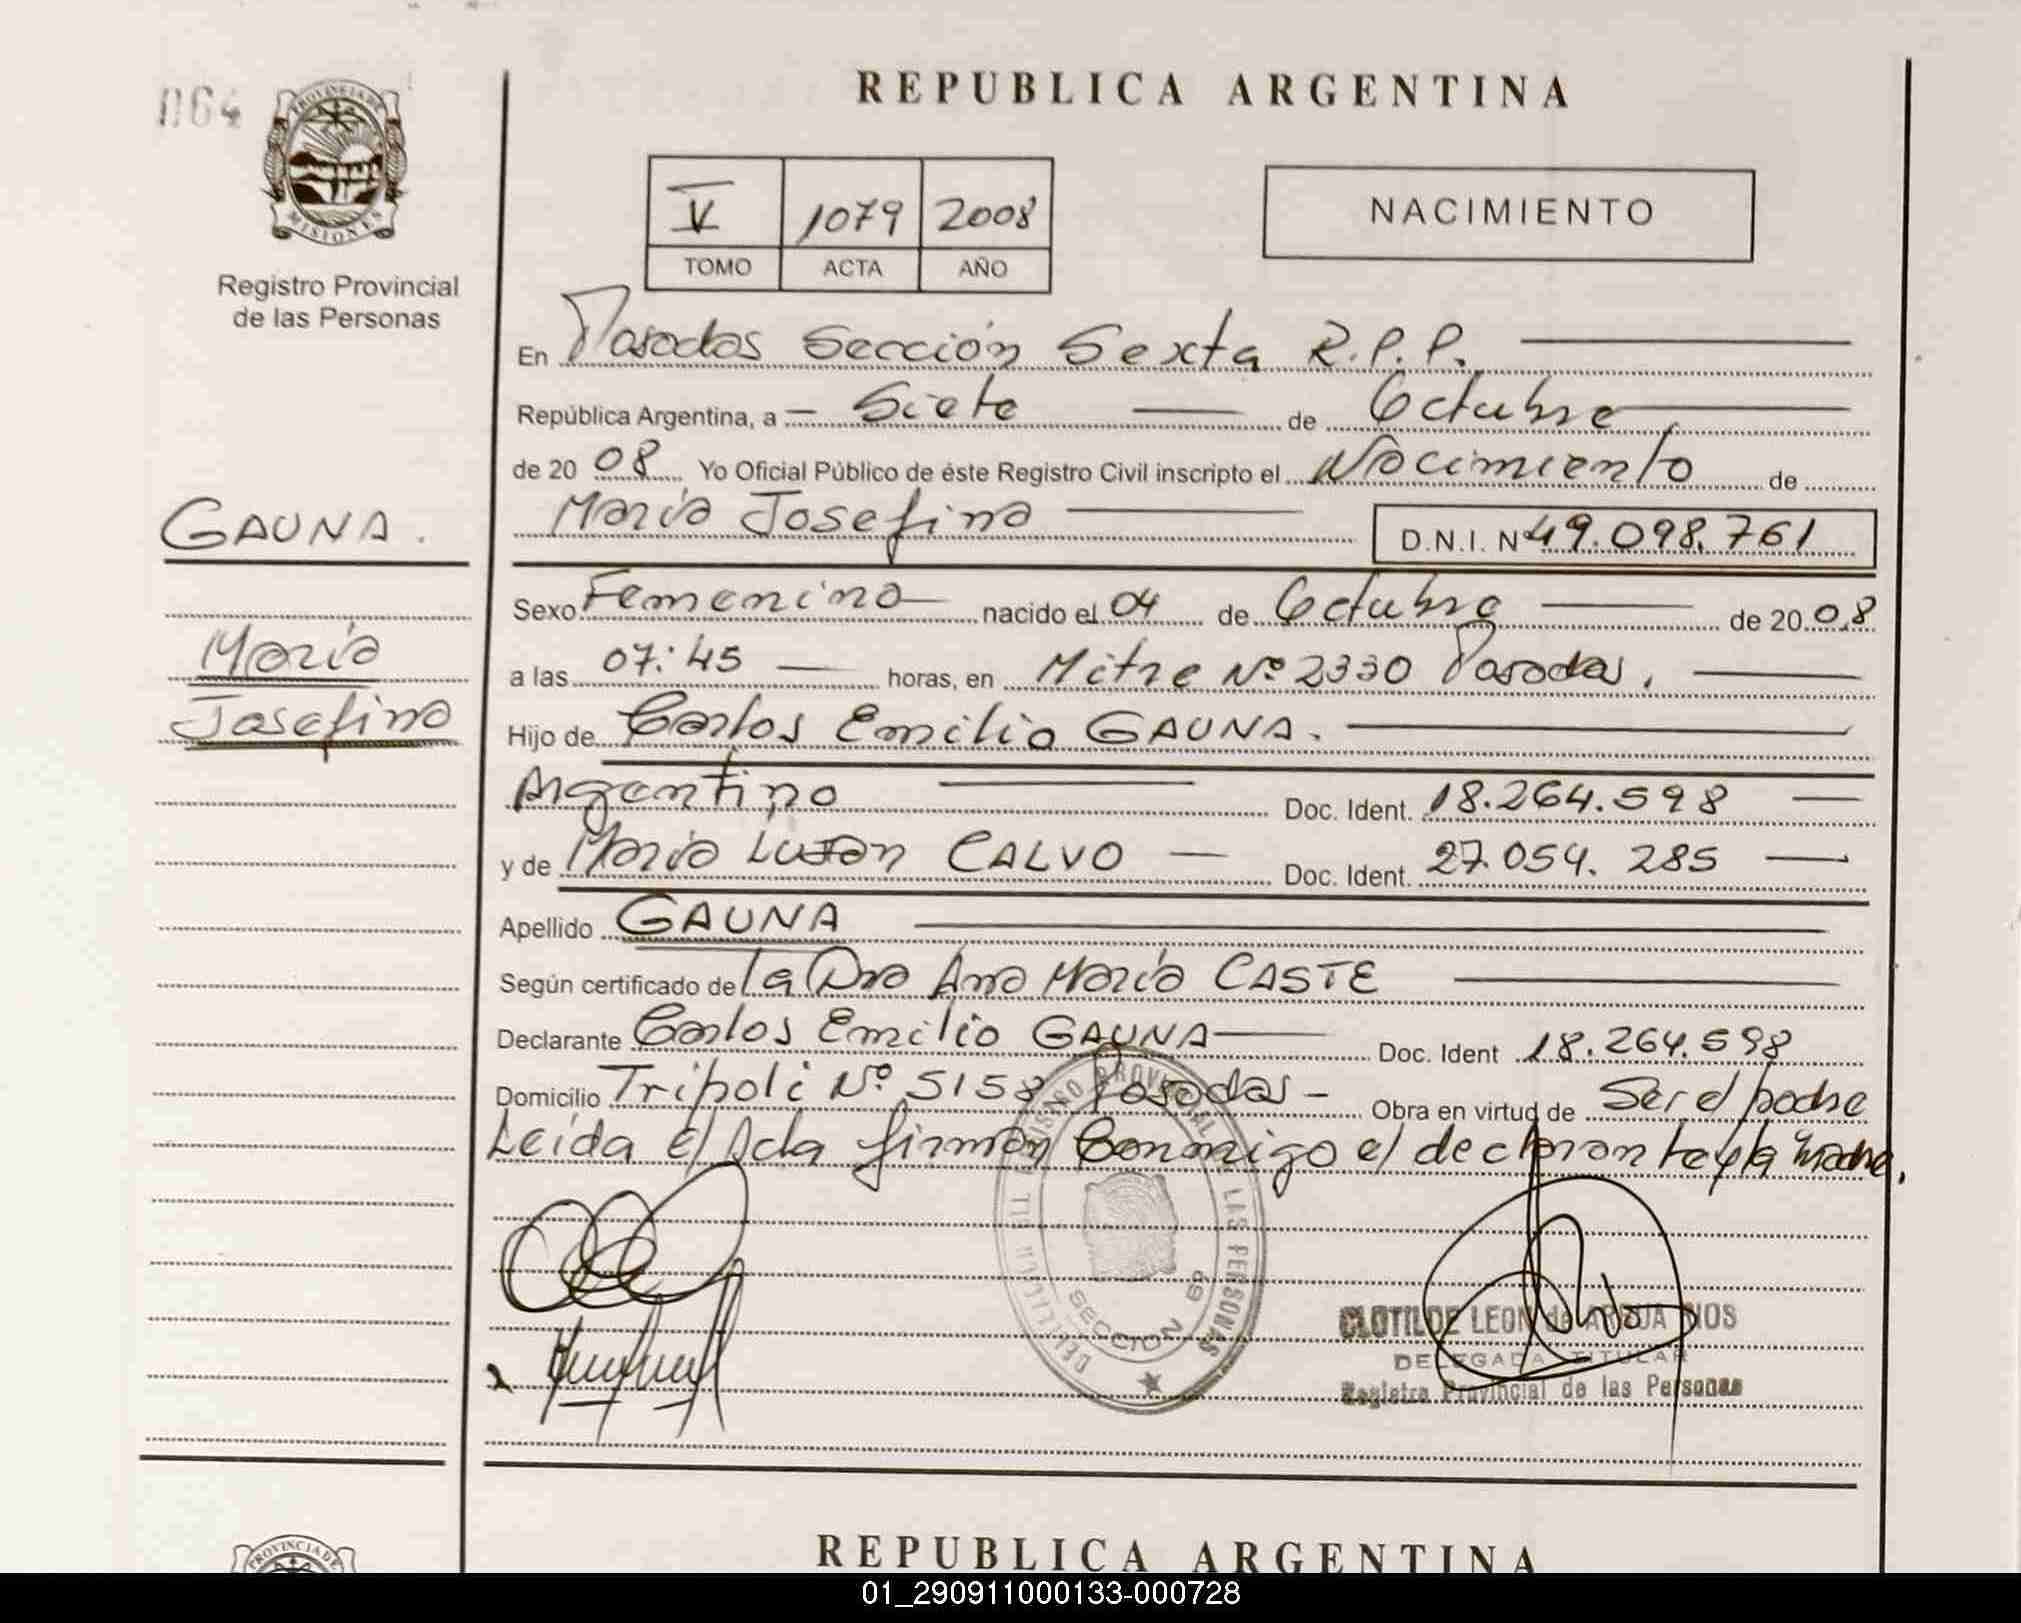 064
PROVINCIA DE
MISIONES
Registro Provincial
de las Personas
REPUBLICA ARGENTINA
V 1079 2008
TOMO ACTA AÑO
NACIMIENTO
En Posadas Sección Sexta R.P.P.
República Argentina, a Siete de Octubre
de 20 08 Yo Oficial Público de éste Registro Civil inscripto el Nacimiento de
María Josefina D.N.I. Nº 49.098.761
GAUNA.
María
Josefina
Sexo Femenino nacido el 04 de Octubre de 20 08
a las 07:45 horas, en Mitre Nº 2330 Posadas.
Hijo de Carlos Emilio GAUNA.
Argentino Doc. Ident. 18.264.598
y de María Luján CALVO Doc. Ident. 27.054.285
Apellido GAUNA
Según certificado de la Dra Ana María CASTE
Declarante Carlos Emilio GAUNA Doc. Ident 18.264.598
Domicilio Tripoli Nº 5158 Posadas - Obra en virtud de Ser el padre
Leída el Acta firman Conmigo el declarante y la madre.
REGISTRO PROVINCIAL DE LAS PERSONAS
SECCION 6ª
CLOTILDE LEON de
DELEGADA TITULAR
Registro Provincial de las Personas
PROVINCIA DE
REPUBLICA ARGENTINA
01_290911000133-000728